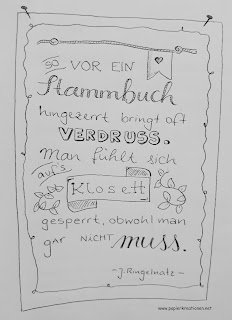 SO VOR EIN
Stammbuch
hingezerrt bringt oft
VERDRUSS.
Man fühlt sich
auf's
Klosett
gesperrt, obwohl man
gar NICHT muss.
- J. Ringelnatz -
www.papierkreationen.net